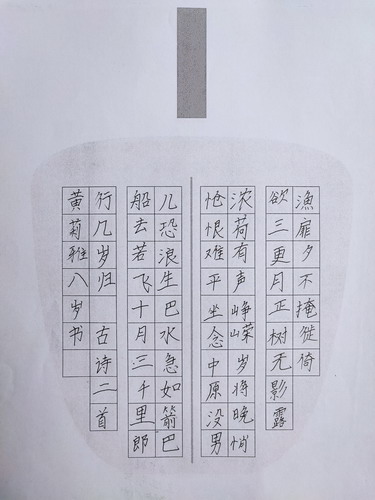 漁扉夕不掩徙倚
欲三更月正树无影露
浓荷有声 峥嵘岁将晚悄
怆恨难平 坐念中原没男
儿恐浪生巴水急如箭巴
船去若飞十月三千里郎
行几岁归 古诗二首
黄莉雅八岁书